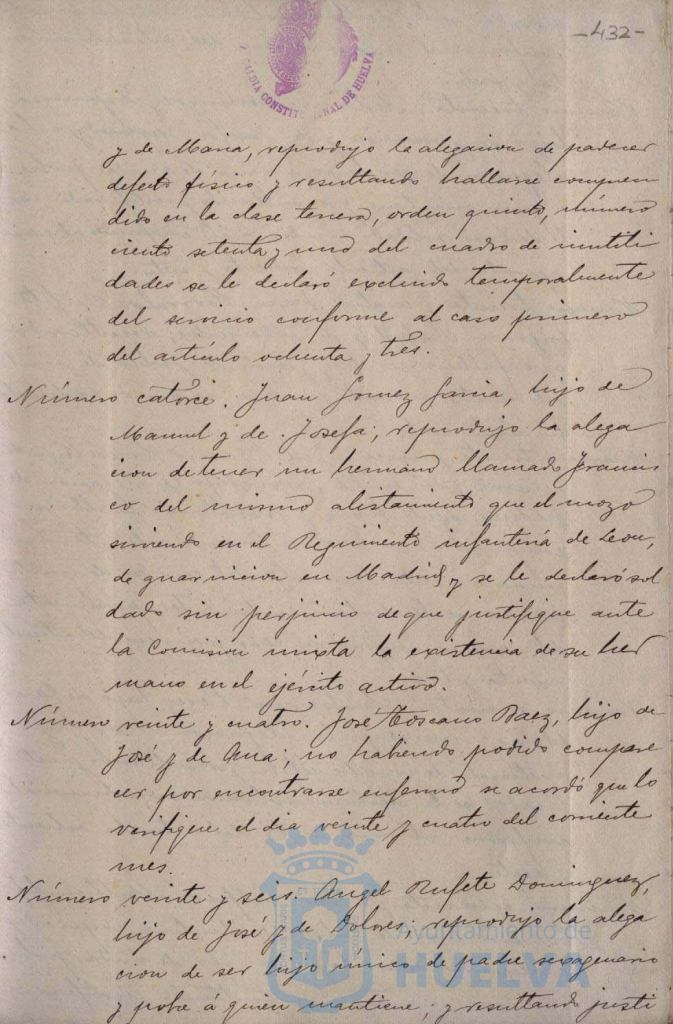 -432-
ALCALDIA CONSTITUCIONAL DE HUELVA
y de Maria, reprodujo la alegacion de padecer
defecto físico y resultando hallarse compren
dido en la clase tercera, orden quinto, número
ciento setenta y uno del cuadro de inutili
dades se le declaró excluido temporalmente
del servicio conforme al caso primero
del artículo ochenta y tres.
Número catorce. Juan Gomez Garcia, hijo de
Manuel y de Josefa; reprodujo la alega
cion de tener un hermano llamado Francis
co del mismo alistamiento que el mozo
sirviendo en el Regimiento infantería de Leon,
de guarnicion en Madrid y se le declaró sol
dado sin perjuicio de que justifique ante
la Comision mixta la existencia de su her
mano en el ejército activo.
Número veinte y cuatro. José Toscano Baez, hijo de
José y de Ana; no habiendo podido compare
cer por encontrarse enfermo se acordó que lo
verifique el dia veinte y cuatro del corriente
mes.
Número veinte y seis. Angel Rufete Dominguez,
hijo de José y de Dolores; reprodujo la alega
cion de ser hijo único de padre sexagenario
y pobre á quien mantiene; y resultando justi
Ayuntamiento de
HUELVA